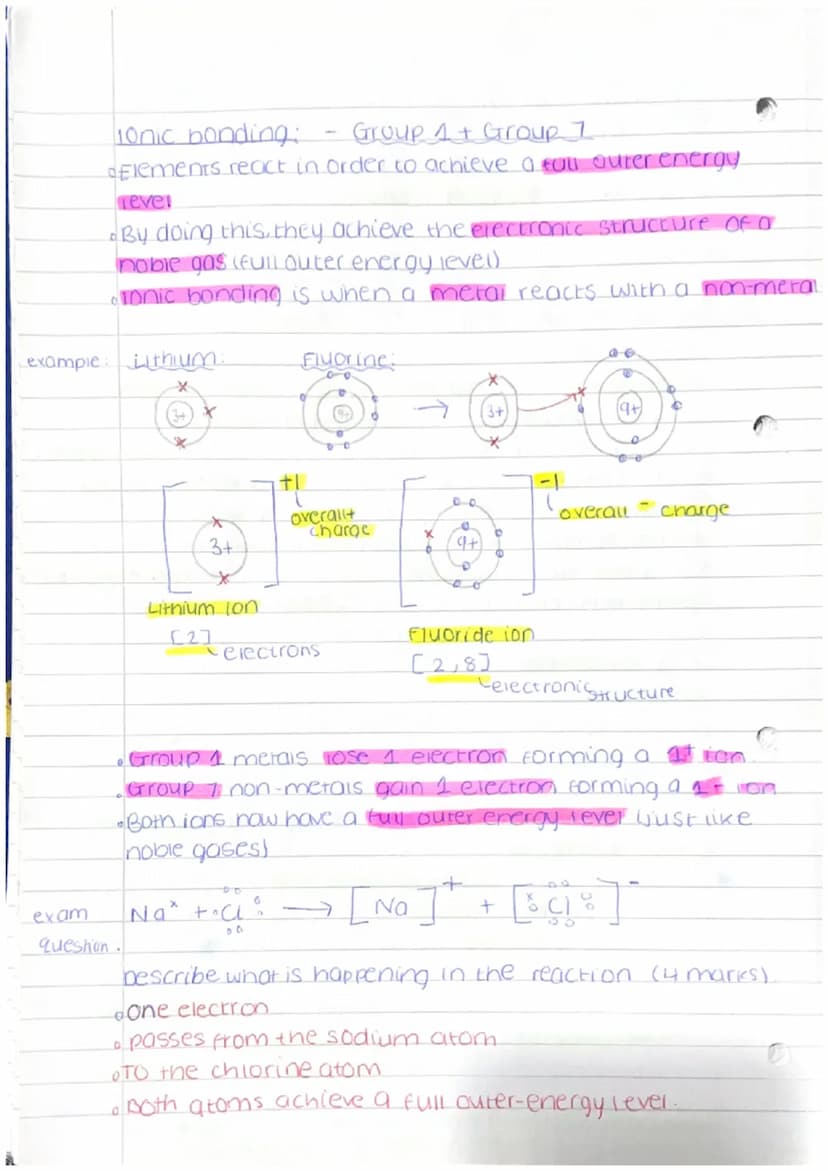 Ionic bonding: - Group 1 + Group 7
Elements react in order to achieve a full outer energy
level
By doing this, they achieve the electronic structure of a
noble gas (full outer energy level)
Ionic bonding is when a metal reacts with a non-metal
example: Lithium: Fluorine:
3+ 9+ → 3+ 9+
+1 -1
overall + overall - charge
charge
3+ 9+
Lithium ion
Fluoride ion
[2]
electrons
[2,8]
electronic structure
Group 1 metals lose 1 electron forming a 1+ ion
Group 7 non-metals gain 1 electron forming a 1- ion
Both ions now have a full outer energy level (just like
noble gases)
exam Na + Cl → [Na]+ + [Cl]-
question.
Describe what is happening in the reaction (4 marks)
One electron
passes from the sodium atom
TO the chlorine atom
Both atoms achieve a full outer-energy level.